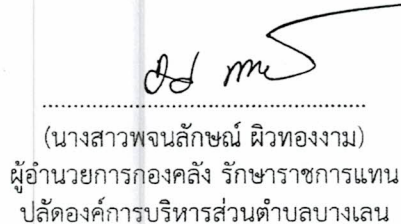 (นางสาวพจนลักษณ์ ผิวทองงาม)
ผู้อำนวยการกองคลัง รักษาราชการแทน
ปลัดองค์การบริหารส่วนตำบลบางเลน